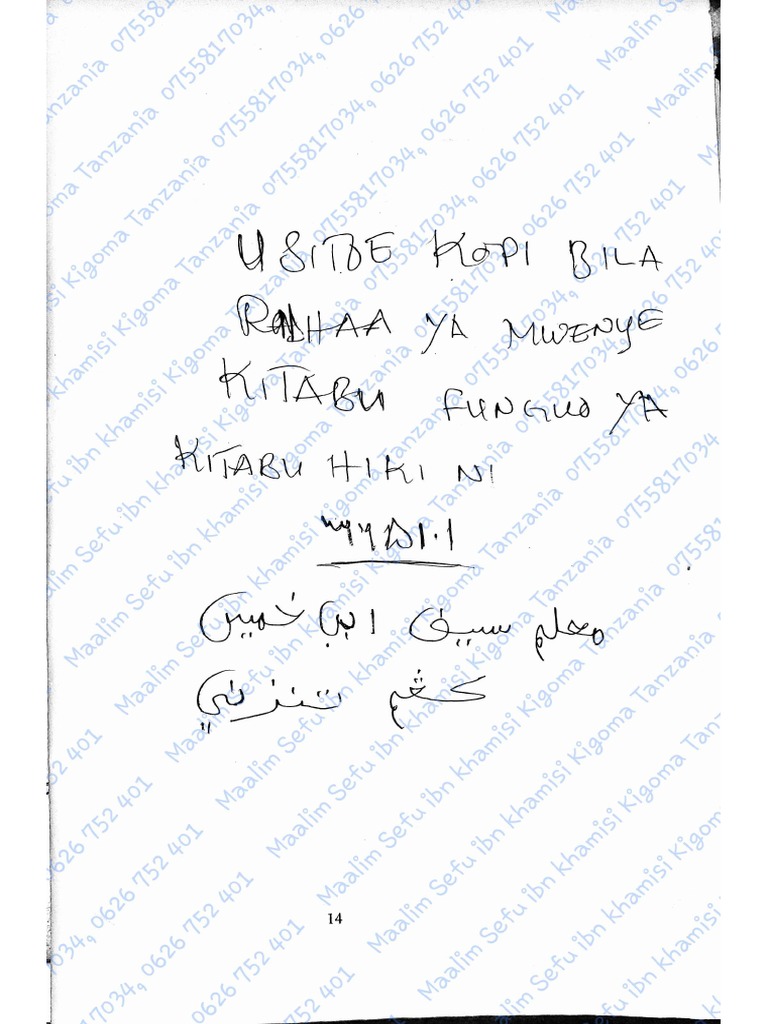 USITOE KOPI BILA
RADHAA YA MWENYE
KITABU FUNGUO YA
KITABU HIKI NI
معلم سيف ابن خميس
كڠم تنزني
14
Maalim Sefu ibn khamisi Kigoma Tanzania 0755817034, 0626 752 401